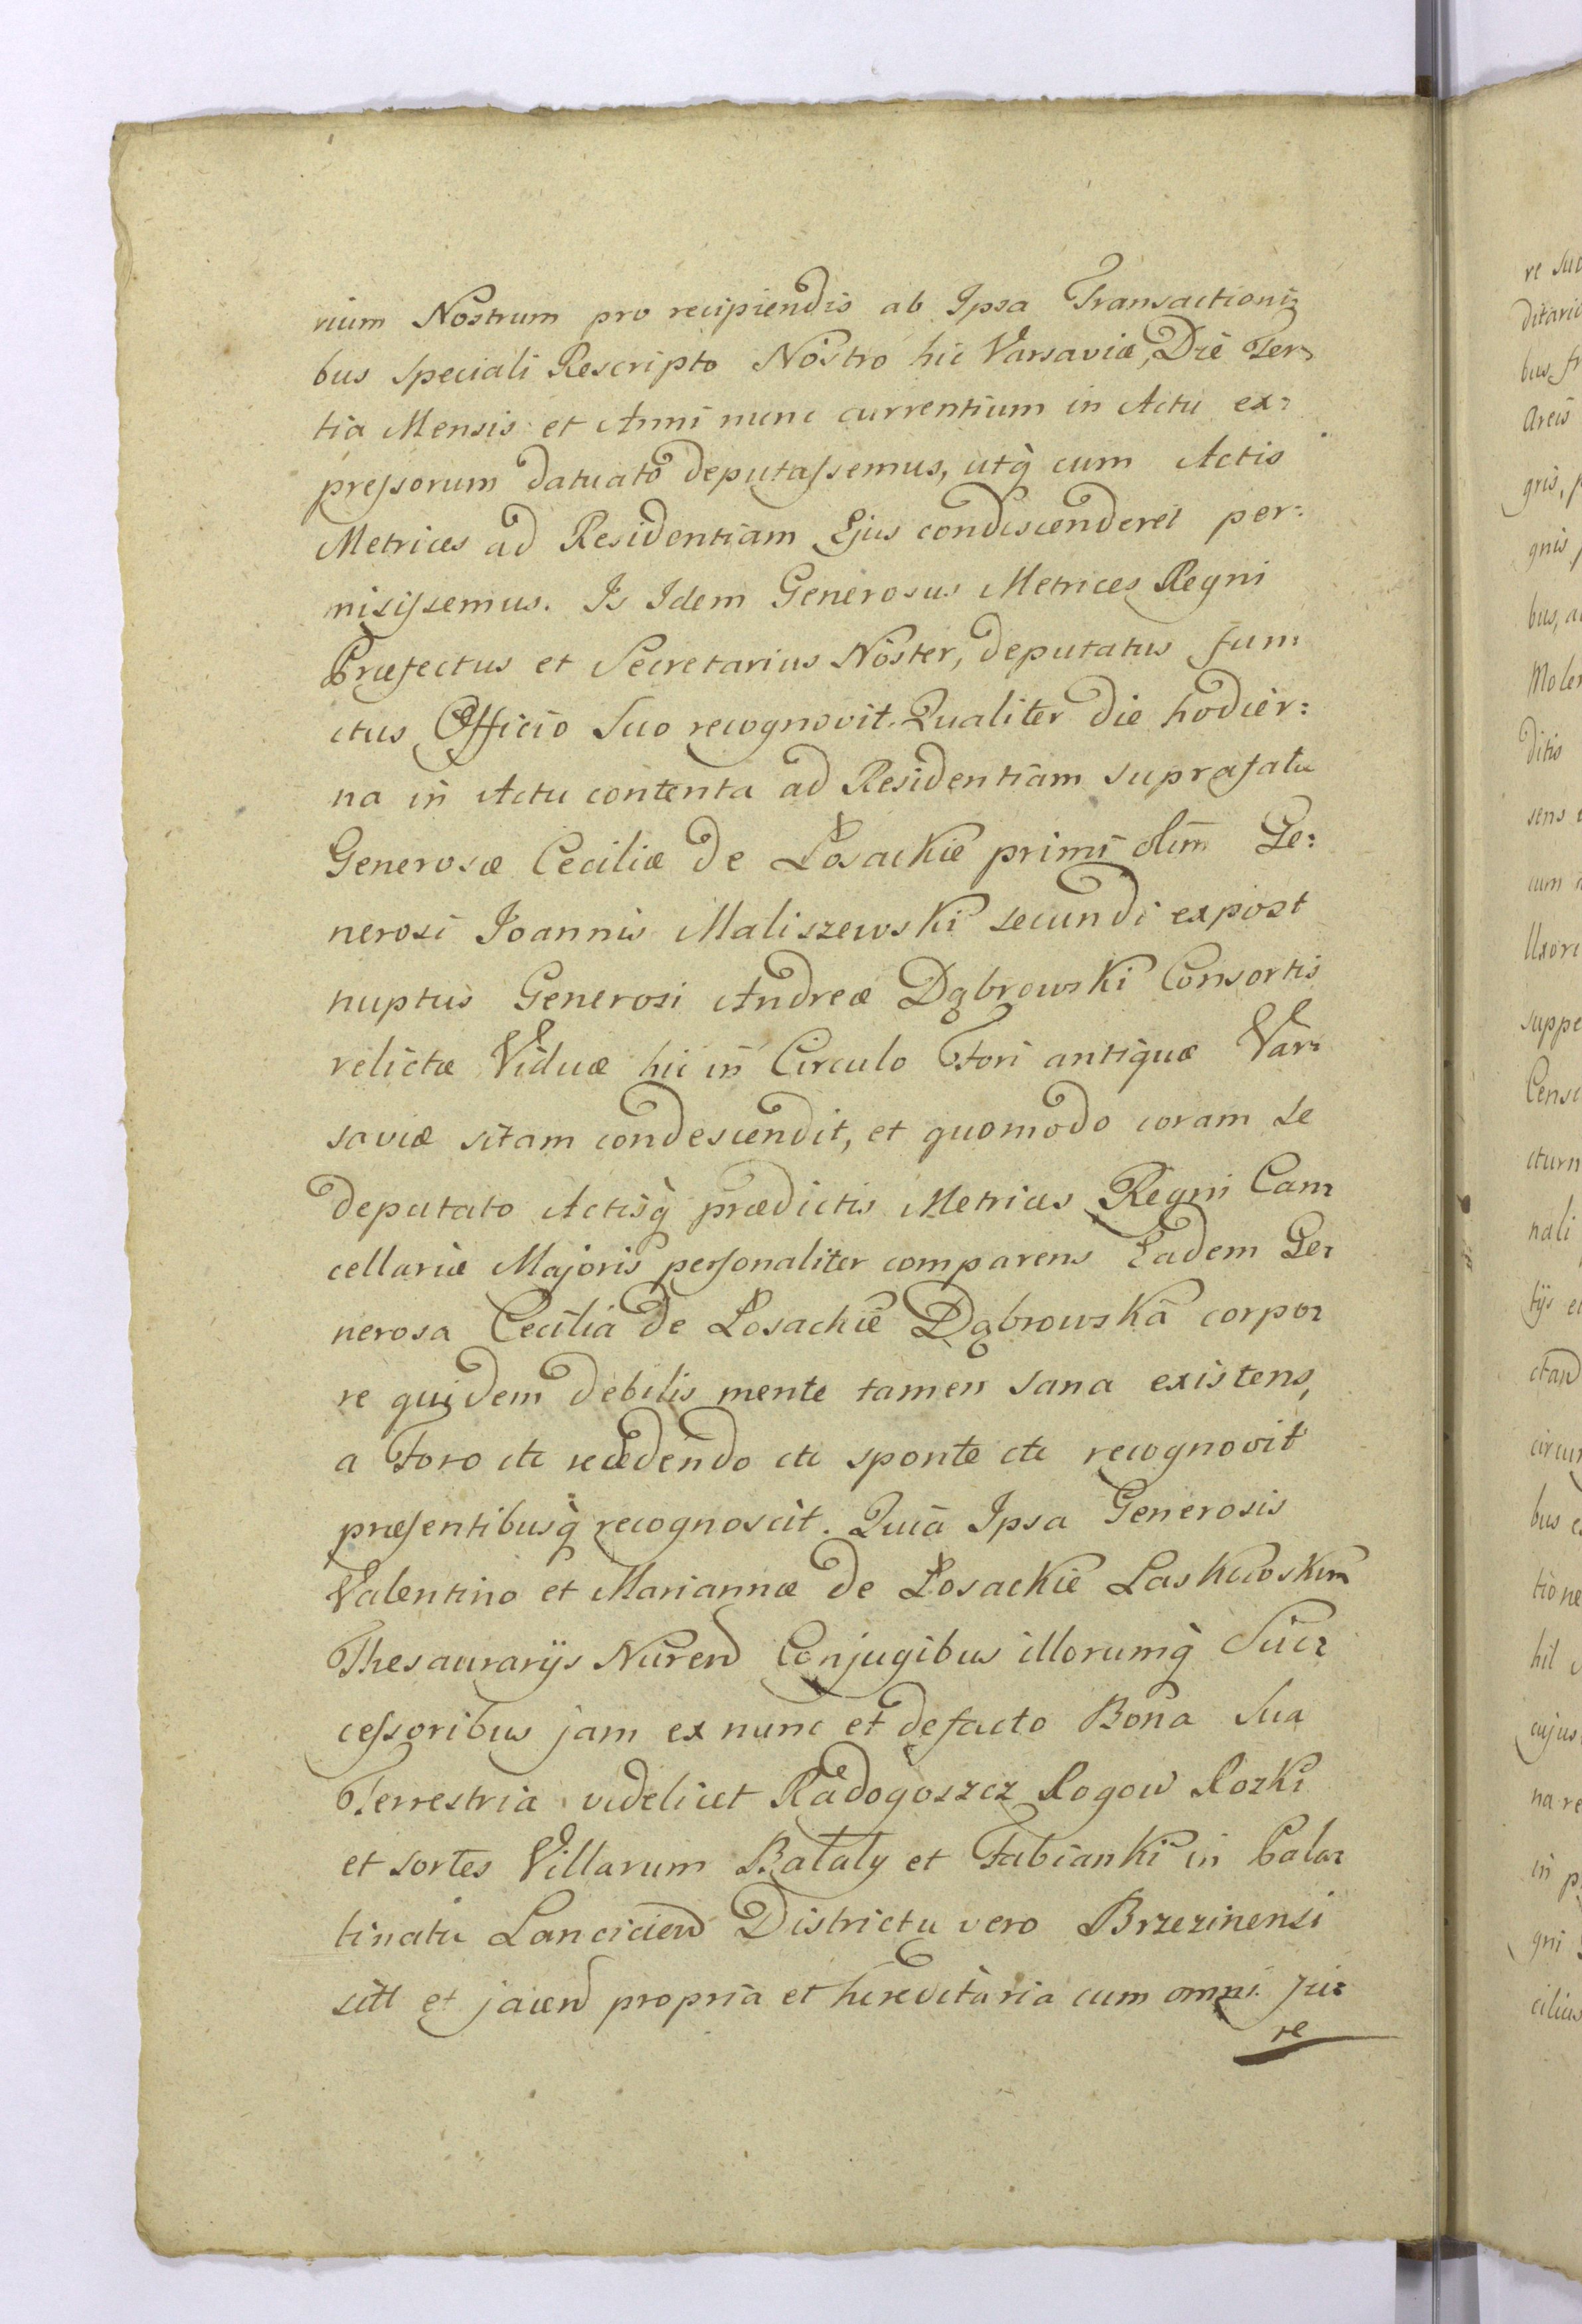 rium Nostrum pro recipiendis ab Ipsa Transactioni=
bus speciali Rescripto Nostro hic Varsaviæ, Die Ter=
tia Mensis et Anni nunc currentium in Actu ex=
preſsorum datuato deputaſsemus, utq̀ cum Actis
Metrices ad Residentiam Ejus condiscenderet per=
misiſsemus. Is Idem Generosus Metrices Regni
Præfectus et Secretarius Noster, deputatus fun=
ctus Officio Suo recognovit. Qualiter die hodier=
na in Actu contenta ad Residentiam suprafatæ
Generosæ Ceciliæ de Łosackie primi olim Ge=
nerosi Joannis Maliszewski secundi expost
nuptus Generosi Andreæ Dąbrowski Consortis
relictæ Viduæ hic in Circulo Fori antiquæ Var=
saviæ sitam condescendit, et quomodo coram se
deputato Actisq̀ prædictis Metrices Regni Can=
cellariæ Majoris perſonaliter comparens Eadem Ge=
nerosa Cecilia de Łosackie Dąbrowska corpo=
re quidem debilis mente tamen sana existens,
a Foro etc recedendo etc sponte etc recognovit
præſentibusq̀ recognoscit. Quia Ipsa Generosis
Valentino et Mariannæ de Łosackie Laskowskim
Thesaurarijs Nuren Conjugibus illorumq̀ Suc=
ceſsoribus jam ex nunc et defacto Bona Sua
Terrestria videlicet Radogoszcz Rogow Rozki
et sortes Villarum Bałaty et Fabianki in Pala=
tinatu Lancicien Districtu vero Brzezinensi
sitt et jacen propria et hæreditaria cum omni Ju=
re
re
ditario
bus
Areis
gris,
gnis
bus,
ditis
sens
cum
Uxori
suppe
nali
bus
tione
hil
cujus
na re
in
gni